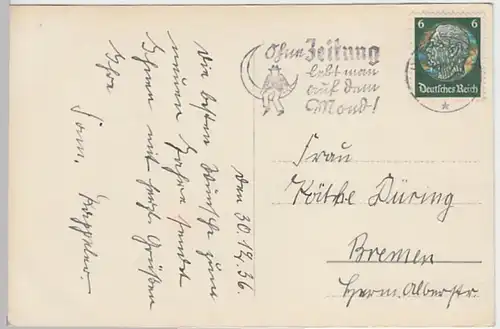 den 30.12.36.
Die besten Wünsche zum
neuen Jahre sendet
Ihnen mit herzl. Grüßen
Ihre
Fam.
Ohne Zeitung
lebt man
auf dem
Mond!
6 6
Deutsches Reich
Frau
Käthe Düring
Bremen
Herm. Allmerstr.